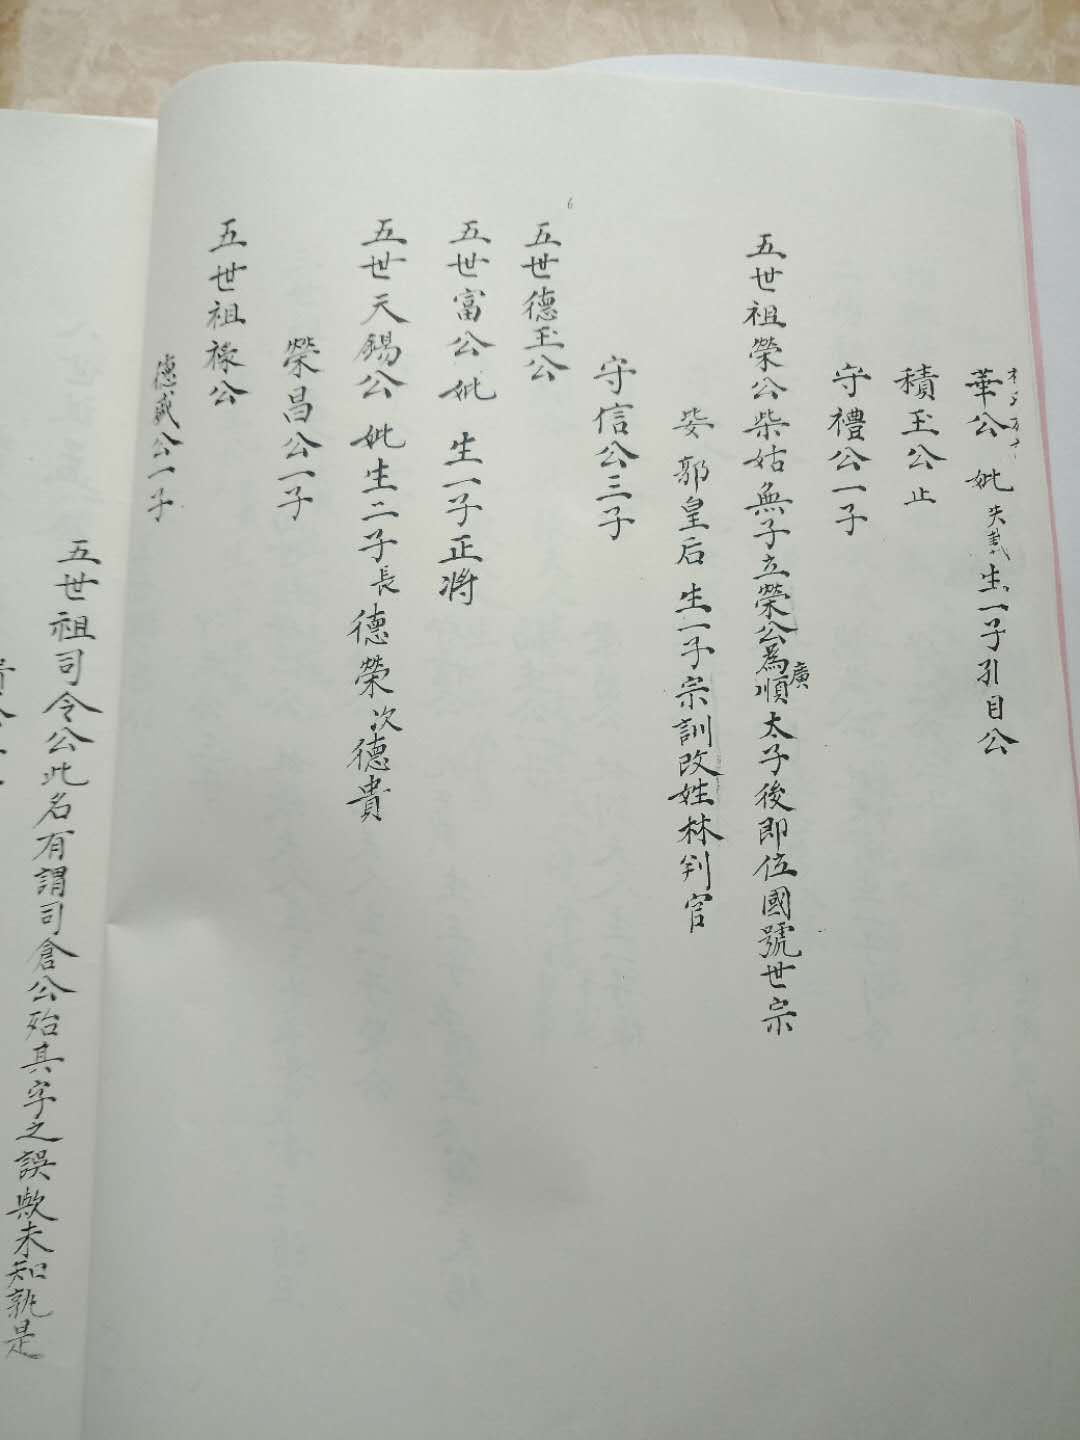 華公 妣 失載 生一子引目公
積玉公 止
守禮公一子
五世祖榮公柴姑無子立榮公為廣順太子後即位國號世宗
妾 郭皇后 生一子宗訓改姓林判官
守信公三子
五世德玉公
五世富公妣 生一子正將
五世天錫公 妣生二子長德榮次德貴
榮昌公一子
五世祖祿公
德貳公一子
6
五世祖司令公此名有謂司倉公殆其字之誤歟未知孰是